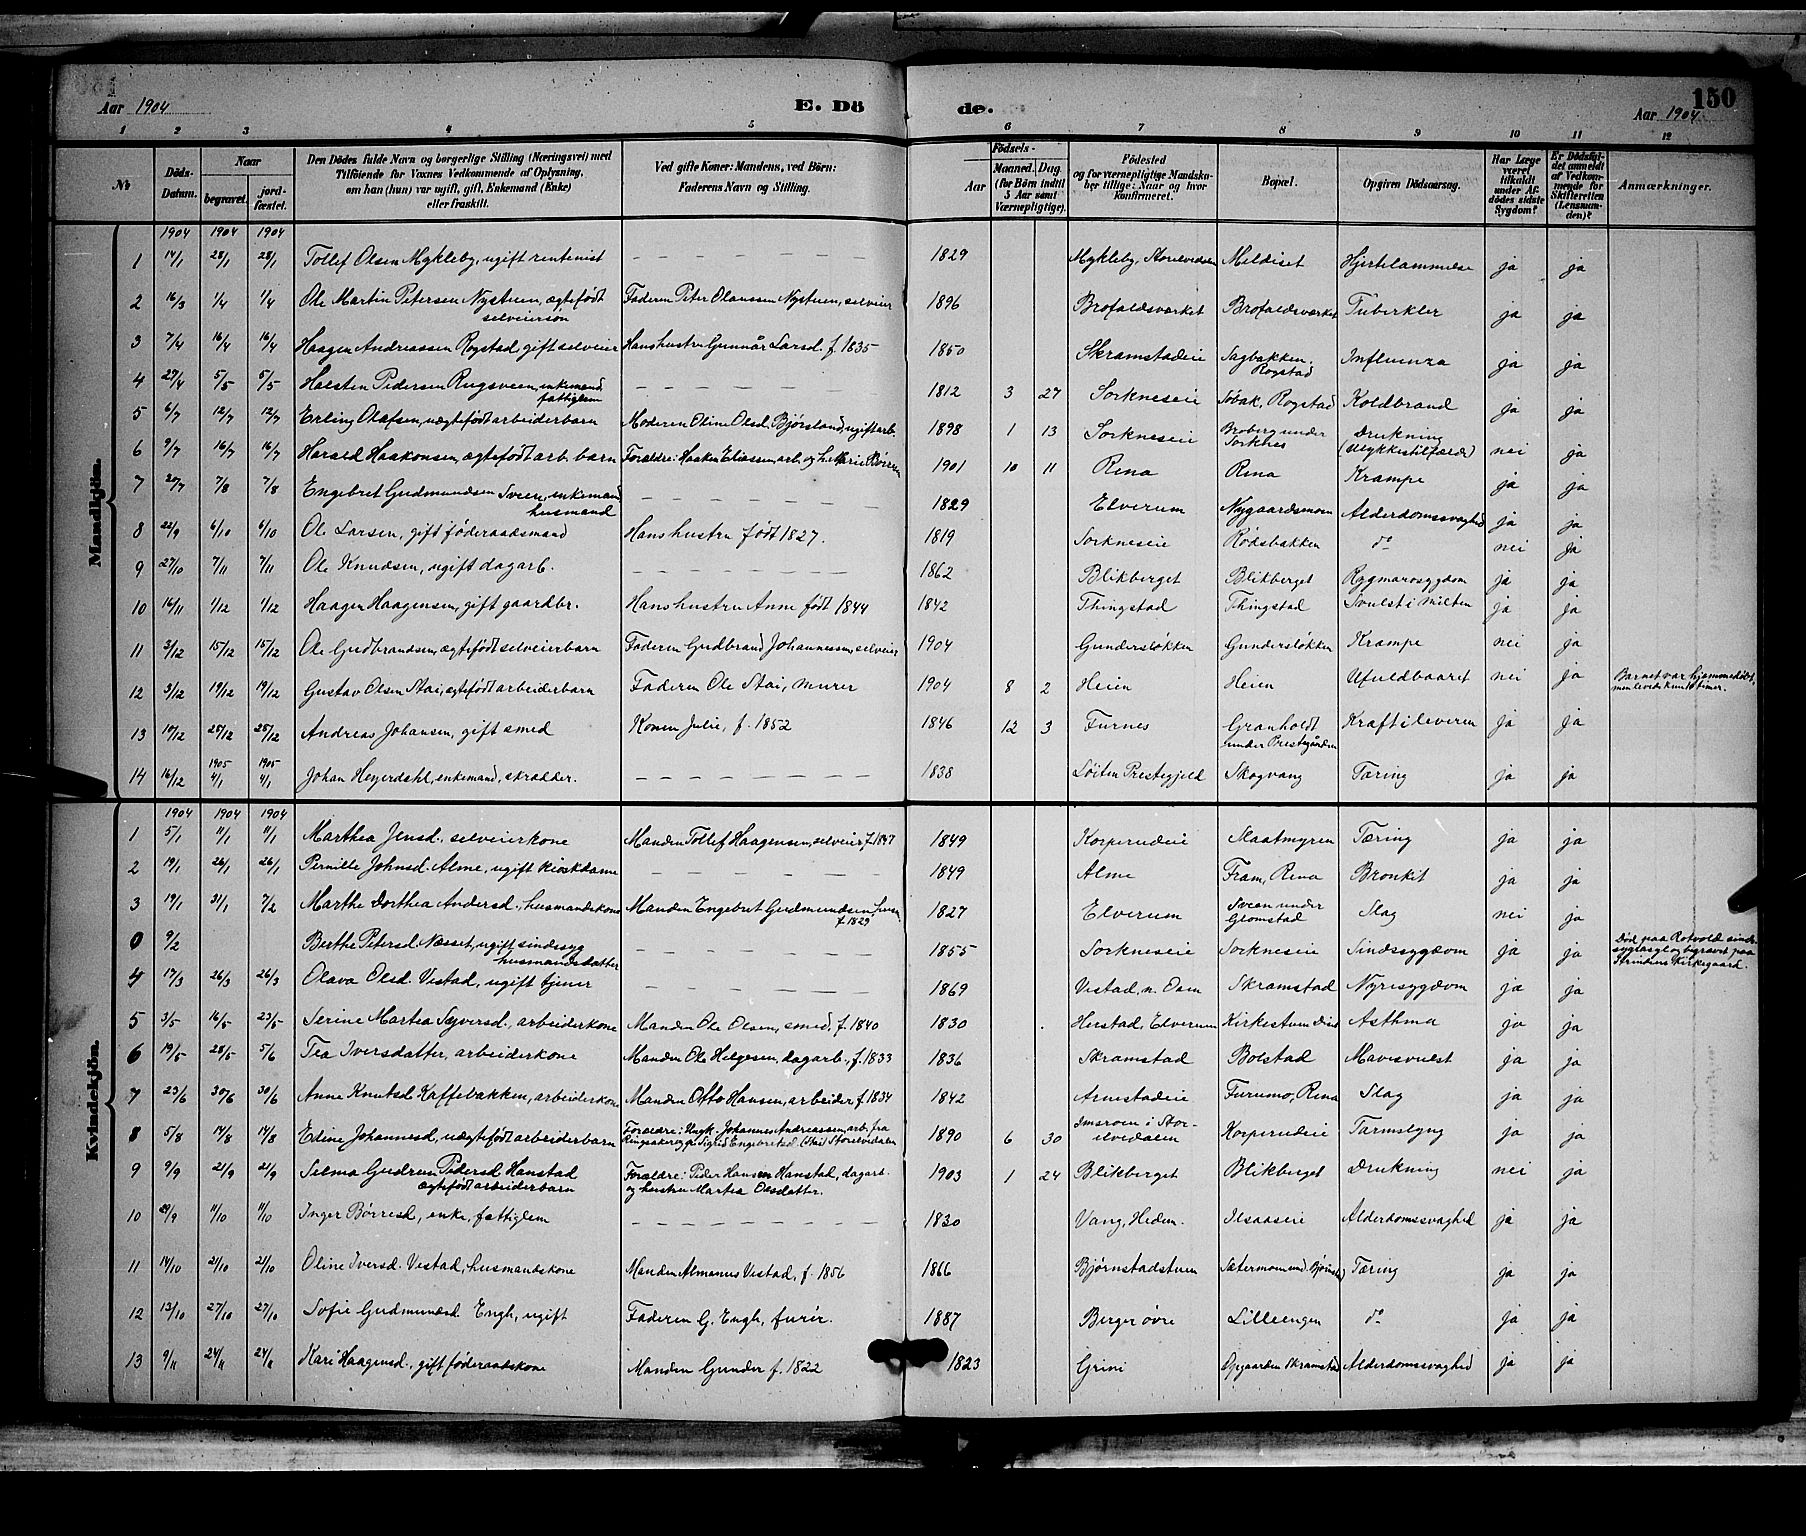 Aar 1904 E. Dö de. Aar 1904 150
1 2 3 4 5 6 7 8 9 10 11 12
No Döds-Datum. Naar begravet. jordfæstet. Den Dödes fulde Navn og borgerlige Stilling (Næringsvei) med Tilföiende for Voxnes Vedkommende af Oplysning, om han (hun) var ugift, gift, Enkemand (Enke) eller fraskilt. Ved gifte Koner: Mandens, ved Börn: Faderens Navn og Stilling. Födsels- Aar Maaned. Dag. (for Börn indtil 5 Aar samt Værnepligtige). Födested og for værnepligtige Mandskaber tillige: Naar og hvor Konfirmeret. Bopæl. Opgiven Dödsaarsag. Har Læge været tilkaldt under Afdödes sidste Sygdom? Er Dödsfaldet anmeldt af Vedkommende for Skifteretten (Lensmanden)? Anmærkninger.
Mandkjön.
1904 1904 1904
1 14/1 28/1 28/1 Tollef Olsen Mykleby, ugift rentenist — 1829 Mykleby, Storelvedalen Meldiset Hjertelammelse ja ja
2 16/3 1/4 1/4 Ole Martin Petersen Nystuen, ægtefødt selveiersøn Faderen Peter Olaussen Nystuen, selveier 1896 Brofaldsværket Brofaldsværket Tuberkler ja ja
3 7/4 16/4 16/4 Haagen Andreassen Rogstad, gift selveier Hans hustru Gunnár Larsd. f. 1835 1850 Skramstadeie Sagbakken, Rogstad Influenza ja ja
4 27/4 5/5 5/5 Halsten Pedersen Rugsveen, enkemand fattiglem — 1812 3 27 Sorkneseie Søbak, Rogstad Koldbrand ja ja
5 6/7 12/7 12/7 Erling Olafsen, uægtefødt arbeiderbarn Moderen Oline Olsd. Bjørsland, ugift arb. 1898 1 13 Sorkneseie Broberg under Sorknes Drukning (Ulykkestilfælde) nei ja
6 9/7 16/7 16/7 Harald Haakonsen, ægtefødt arb. barn Forældre: Haaken Eliassen, arb. og h. Marie Børresen 1901 10 11 Rena Rena Krampe ja ja
7 7/8 7/8 Engebret Gudmundsen Sveen, enkemand husmand — 1829 Elverum Nygaardsmoen Alderdomssvaghed ja ja
8 22/9 6/10 6/10 Ole Larsen, gift føderaadsmand Hans hustru født 1827. 1819 Sorkneseie Rødsbakken do nei ja
9 27/10 7/11 7/11 Ole Knudsen, ugift dagarb. — 1862 Blikberget Blikberget Rygmarvsygdom ja ja
10 16/11 1/12 1/12 Haagen Haagensen, gift gaardbr. Hans hustru Anne født 1844 1842 Thingstad Thingstad Svulst i Milten ja ja
11 3/12 15/12 15/12 Ole Gudbrandsen, ægtefødt selveierbarn Faderen Gudbrand Johannessen, selveier 1904 Gundersløkken Gundersløkken Krampe nei ja
12 3/12 19/12 19/12 Gustav Olsen Stai, ægtefødt arbeiderbarn Faderen Ole Stai, murer 1904 8 2 Heien Heien Ufuldbaaret nei ja Barnet var hjemmedøbt, men levede kun timer.
13 19/12 28/12 28/12 Andreas Johansen, gift smed Konen Julie, f. 1852 1846 12 3 Furnes Granholdt under Prestegården Kræft i leveren ja ja
14 16/12 1905 4/1 1905 4/1 Johan Heyerdahl, enkemand, skrædder. — 1838 Løiten Prestegjeld Skogvang Tæring ja ja
Kvindekjön.
1904 1904 1904
1 5/1 11/1 11/1 Marthea Jensd. selveierkone Manden Tollef Haagensen, selveier f. 1847 1849 Korperudeie Slaatmyren Tæring ja ja
2 19/1 26/1 26/1 Pernille Johnsd. Alme, ugift kioskdame — 1849 Alme Fram, Rena Bronkit ja ja
3 19/1 31/1 7/2 Marthe Dorthea Andersd., husmandskone Manden Engebret Gudmundsen, husm. f. 1829 1827 Elverum Sveen under Glomstad Slag nei ja
0 9/2 Berthe Petersd. Næsset, ugift sindssyg husmandsdatter — 1855 Sorkneseie Sorkneseie Sindssygdom ja ja Død paa Rotvold sindssygeasyl og begravet paa Strindens Kirkegaard.
4 17/3 26/3 26/3 Olava Olsd. Vestad, ugift tjener — 1869 Vestad, n. Osen Skramstad Nyresygdom ja ja
5 3/5 16/5 23/5 Serine Martea Syversd., arbeiderkone Manden Ole Olsen, smed, f. 1840 1830 Herstad, Elverum Kirkestuen Asthma ja ja
6 19/5 28/5 5/6 Tea Iversdatter, arbeiderkone Manden Ole Helgesen, dagarb., f. 1833 1836 Skramstad Bolstad Mavesvulst ja ja
7 23/6 30/6 30/6 Anne Knutsd. Kaffebakken, arbeiderkone Manden Otto Hansen, arbeider f. 1834 1842 Arnestadeie Furumo, Rena Slag ja ja
8 5/8 14/8 14/8 Edine Johannesd., uægtefødt arbeiderbarn Forældre: Ungk. Johannes Andreassen, arb. fra Ringsaker og pe. Sigrid Engebretsd. Stai Storelvedalen 1890 6 30 Imsroen i Storelvedalen Korperudeie Tarmslyng ja ja
9 9/9 21/9 21/9 Selma Gudrun Pedersd. Hanstad ægtefødt arbeiderbarn Forældre: Peder Hansen Hanstad, dagarb. og hustru Martea Olsdatter. 1903 1 24 Blikberget Blikberget Drukning nei ja
10 29/9 11/10 11/10 Inger Børresd., enke, fattiglem — 1830 Vang, Hedem. Ilsaaseie Alderdomssvaghed ja ja
11 14/10 21/10 21/10 Oline Iversd. Vestad, husmandskone Manden Almanus Vestad, f. 1856 1866 Bjørnstadstuen Sætermoen und. Tæring ja ja
12 13/10 27/10 27/10 Sofie Gudmundsd. Engh, ugift Faderen G. Engh, furér. 1887 Berger øvre Lilleengen do ja ja
13 9/11 24/11 24/11 Kari Haagensd., gift føderaadskone Manden Gunder f. 1822 1823 Grini Opgaarden Skramstad Alderdomssvaghed ja ja